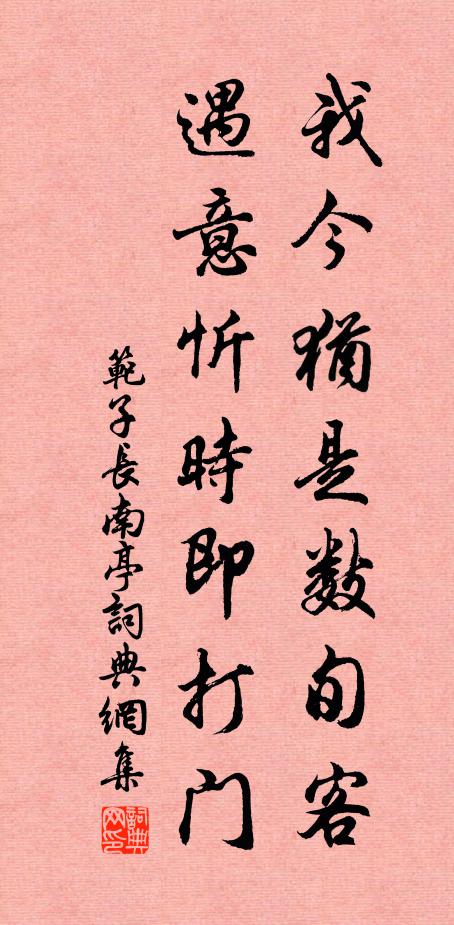 我今猶是數旬客
遇意忻時即打門
範子長南亭詞典網集
詞典网印